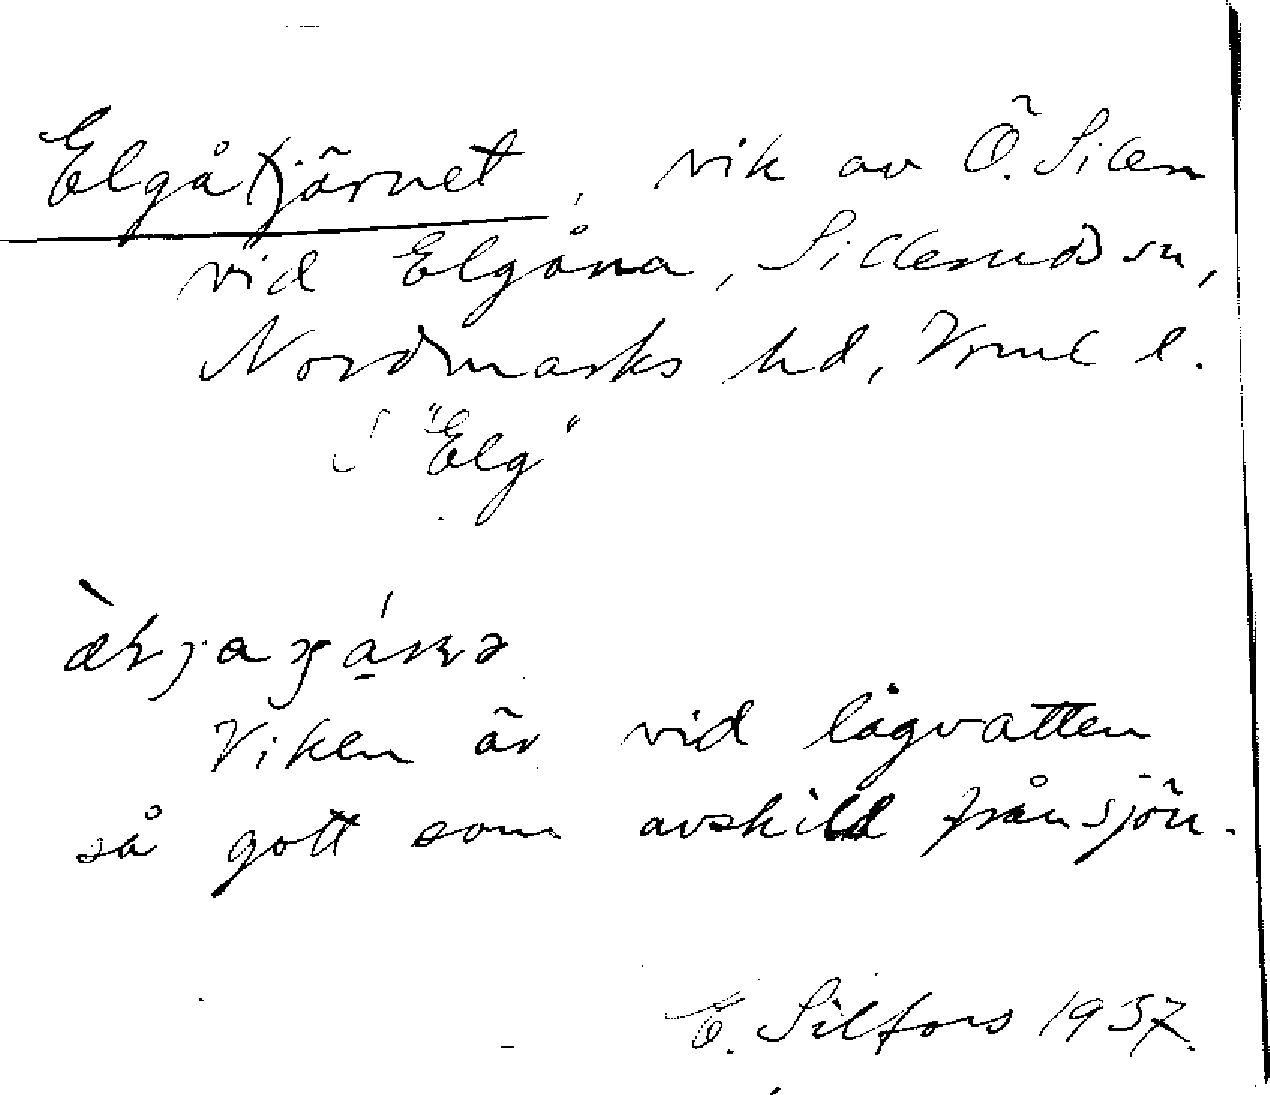 Elgåtjärnet, vik av Ö. Silen
vid Elgåna, Silleruds sn,
Nordmarks hd, Vrml l.
"Elg"
Viken är vid lågvatten
så gott som avskild från sjön.
E. Silfors 1937.